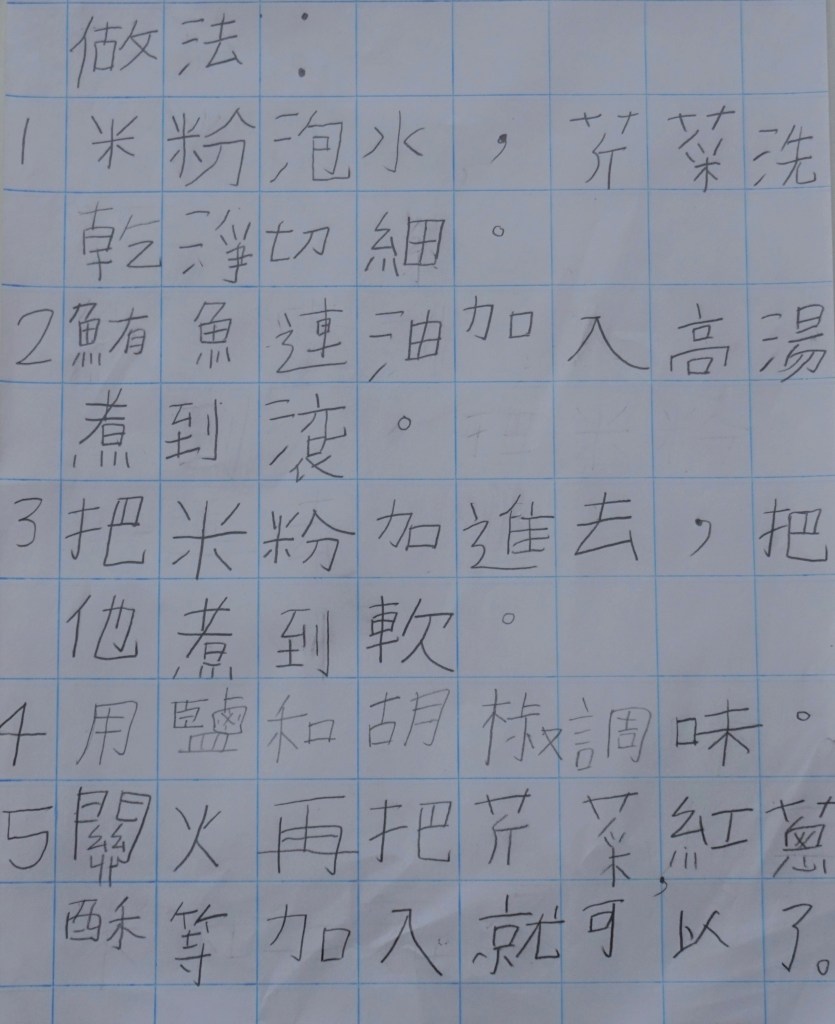 做法：
1 米粉泡水，芹菜洗
乾淨切細。
2 鮪魚連油加入高湯
煮到滾。
3 把米粉加進去，把
他煮到軟。
4 用鹽和胡椒調味。
5 關火再把芹菜，紅蔥
酥等加入就可以了。